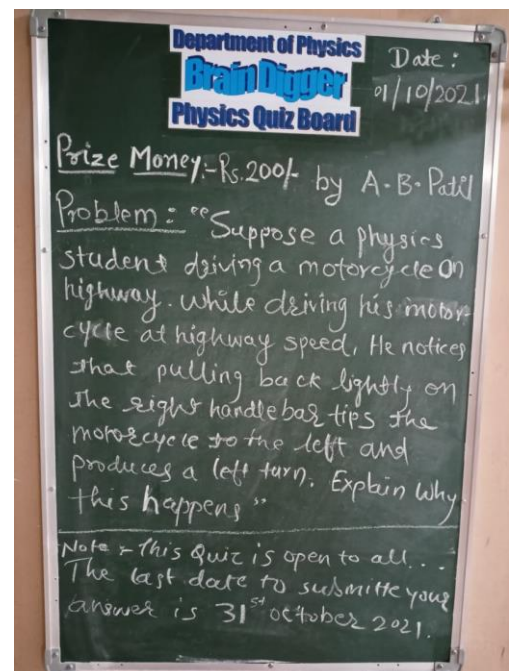 Department of Physics
Brain Digger
Physics Quiz Board
Date :
01/10/2021
Prize Money:- Rs.200/- by A.B.Patil
Problem : "Suppose a physics
student driving a motorcycle on
highway. While driving his motor-
cycle at highway speed, He notices
that pulling back lightly on
the right handlebar tips the
motorcycle to the left and
produces a left turn. Explain why
this happens"
Note :- This Quiz is open to all...
The last date to submitte your
answer is 31st october 2021.